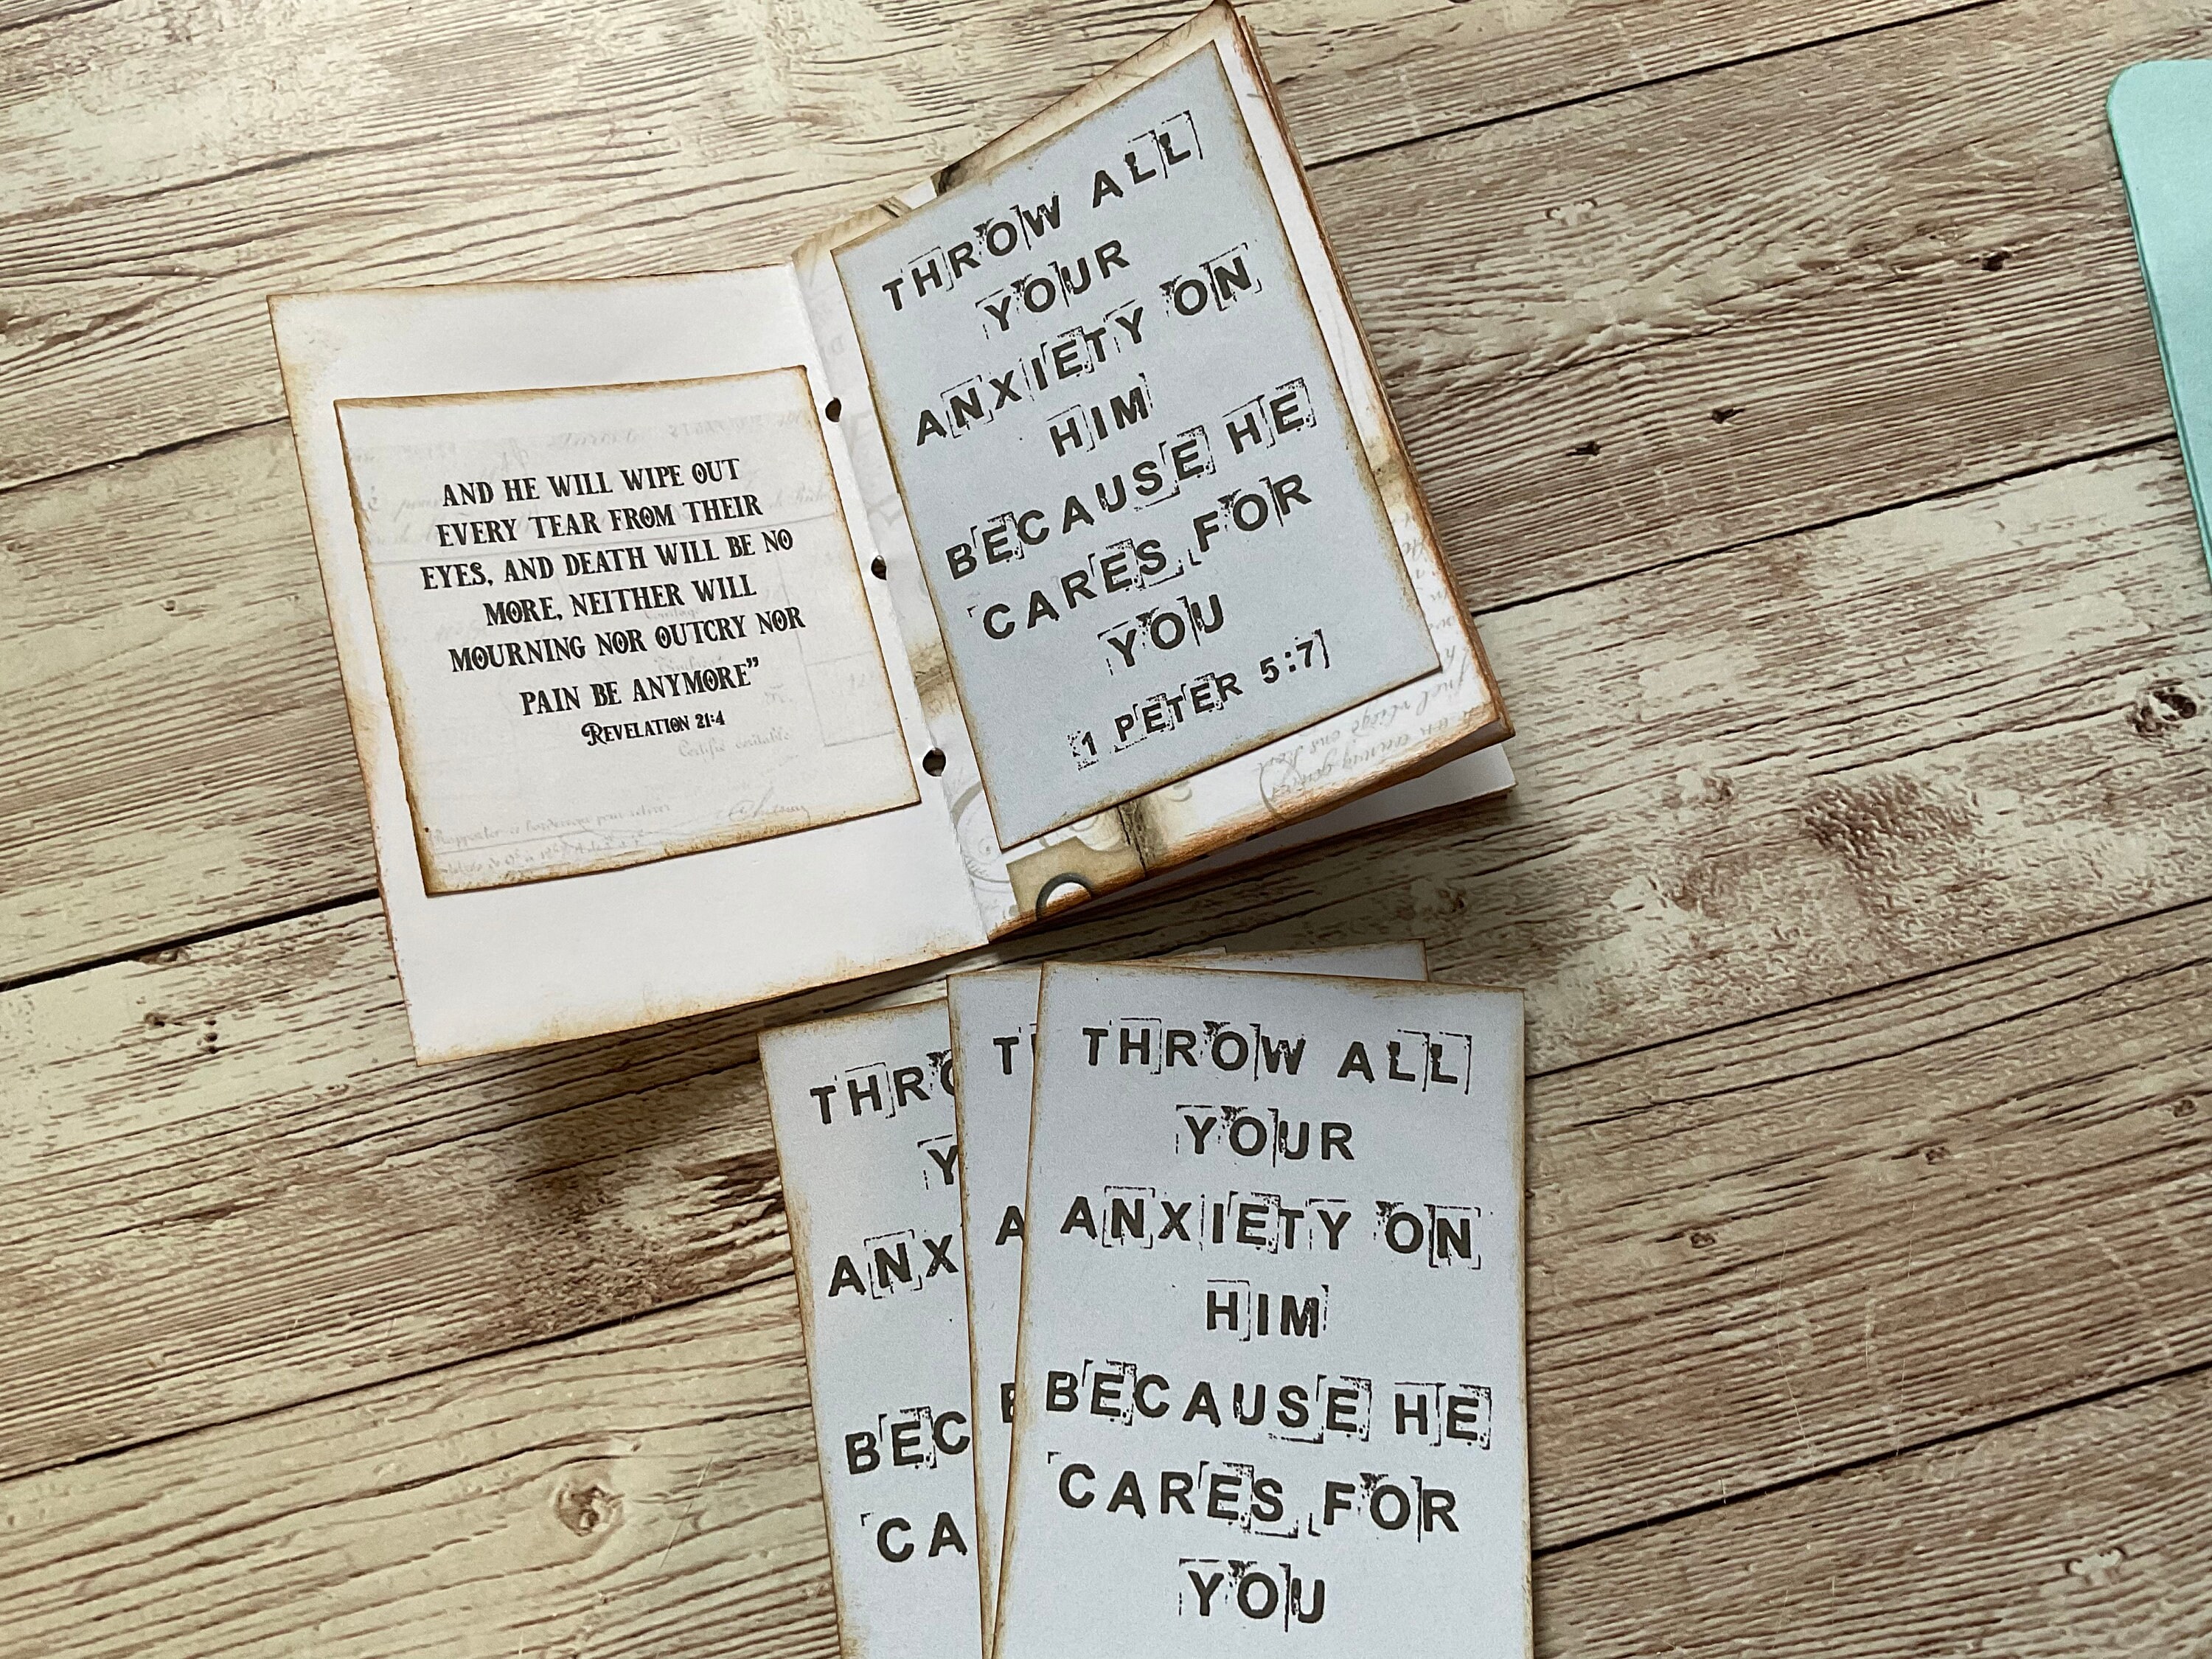 AND HE WILL WIPE OUT
EVERY TEAR FROM THEIR
EYES, AND DEATH WILL BE NO
MORE, NEITHER WILL
MOURNING NOR OUTCRY NOR
PAIN BE ANYMORE”
REVELATION 21:4
THROW ALL
YOUR
ANXIETY ON
HIM
BECAUSE HE
CARES FOR
YOU
1 PETER 5:7
THRO
Y
ANX
BEC
CA
T
A
B
THROW ALL
YOUR
ANXIETY ON
HIM
BECAUSE HE
CARES FOR
YOU